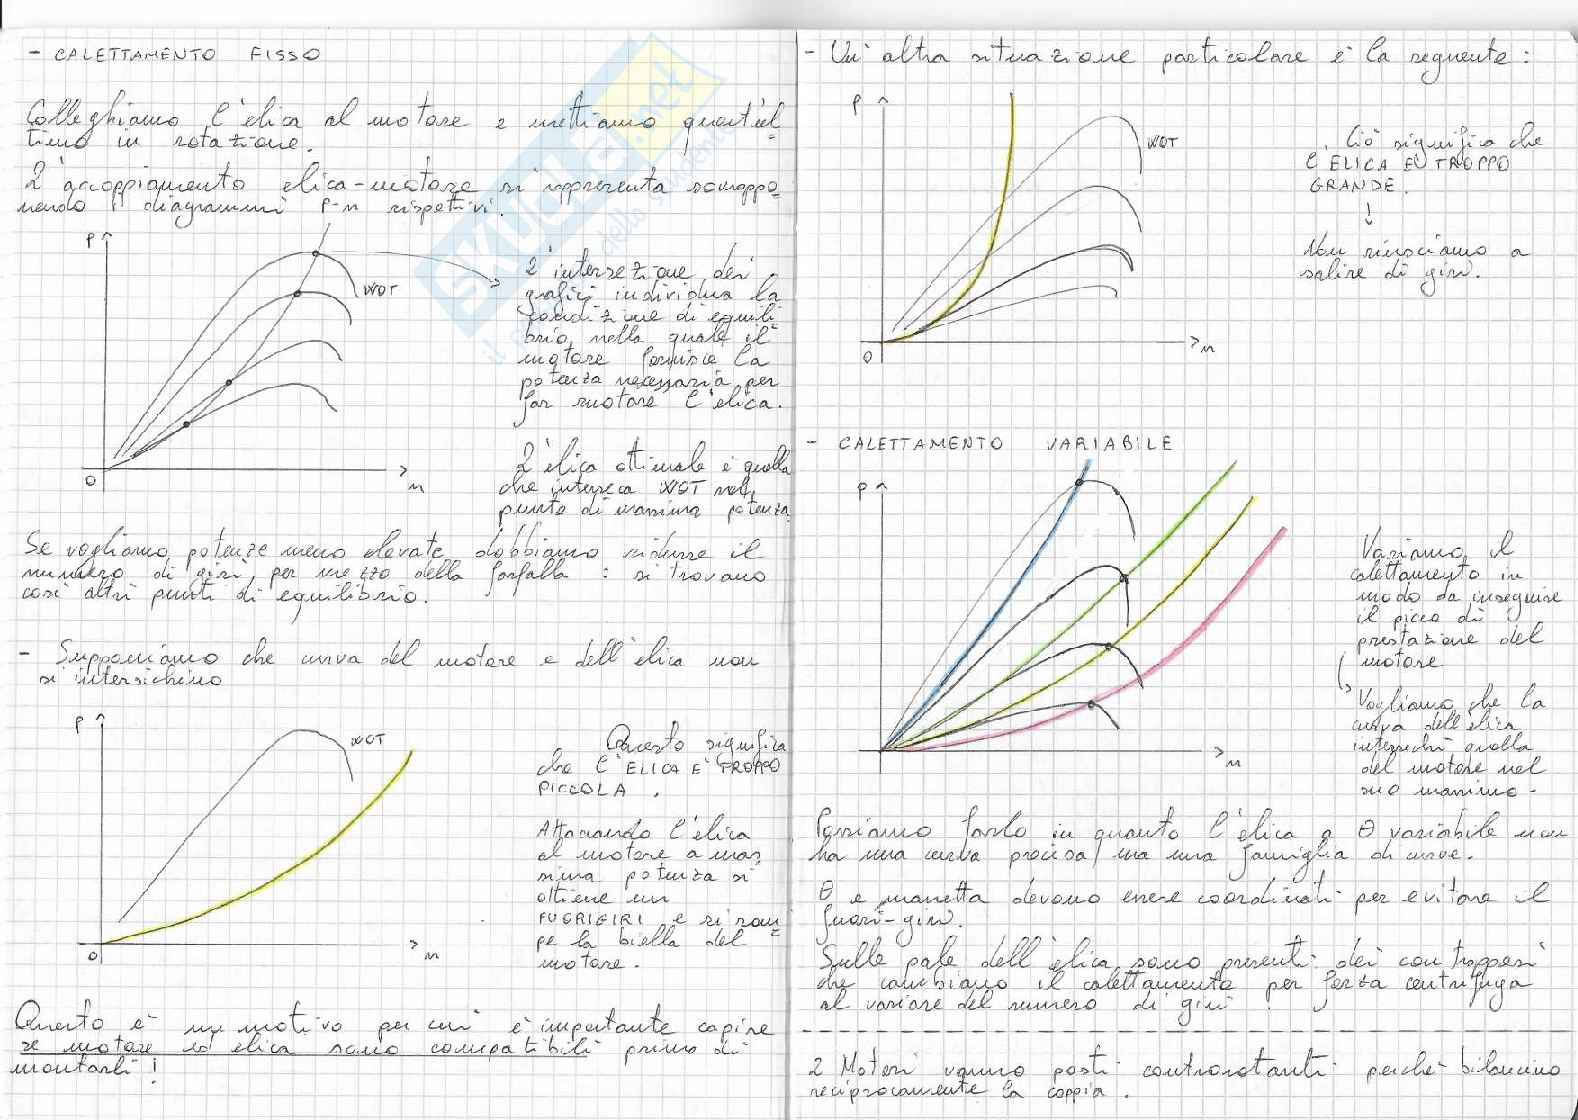 - CALETTAMENTO FISSO
Colleghiamo l'elica al motore e mettiamo quest'ul
timo in rotazione.
L'accoppiamento elica-motore si rappresenta sovrappo
nendo i diagrammi P-n rispettivi.
P
WOT
O
n
L'intersezione dei
grafici individua la
condizione di equili-
brio, nella quale il
motore fornisce la
potenza necessaria per
far ruotare l'elica.
L'elica ottimale è quella
che interseca WOT nel
punto di massima potenza
Se vogliamo potenze meno elevate dobbiamo ridurre il
numero di giri per mezzo della farfalla : si trovano
così altri punti di equilibrio.
- Supponiamo che curva del motore e dell'elica non
si intersichino
P
WOT
O
n
Questo significa
che L'ELICA E' TROPPO
PICCOLA .
Attaccando l'elica
al motore a mas
sima potenza si
ottiene un
FUORIGIRI e si rom
pe la biella del
motore.
Questo è un motivo per cui è importante capire
se motore ed elica sono compatibili prima di
montarli !
- Un'altra situazione particolare è la seguente :
P
WOT
O
n
Ciò significa che
L'ELICA E' TROPPO
GRANDE.
Non riusciamo a
salire di giri.
- CALETTAMENTO VARIABILE
P
O
n
Variamo il
calettamento in
modo da inseguire
il picco di
prestazione del
motore
Vogliamo che la
curva dell'elica
intersichi quella
del motore nel
suo massimo.
Possiamo farlo in quanto l'elica a θ variabile non
ha una curva precisa, ma una famiglia di curve.
θ e manetta devono essere coordinati per evitare il
fuori-giri.
Sulle pale dell'elica sono presenti dei contrappesi
che cambiano il calettamento per forza centrifuga
al variare del numero di giri
2 Motori vanno posti controrotanti perchè bilancino
reciprocamente la coppia .
SKUOLA.net